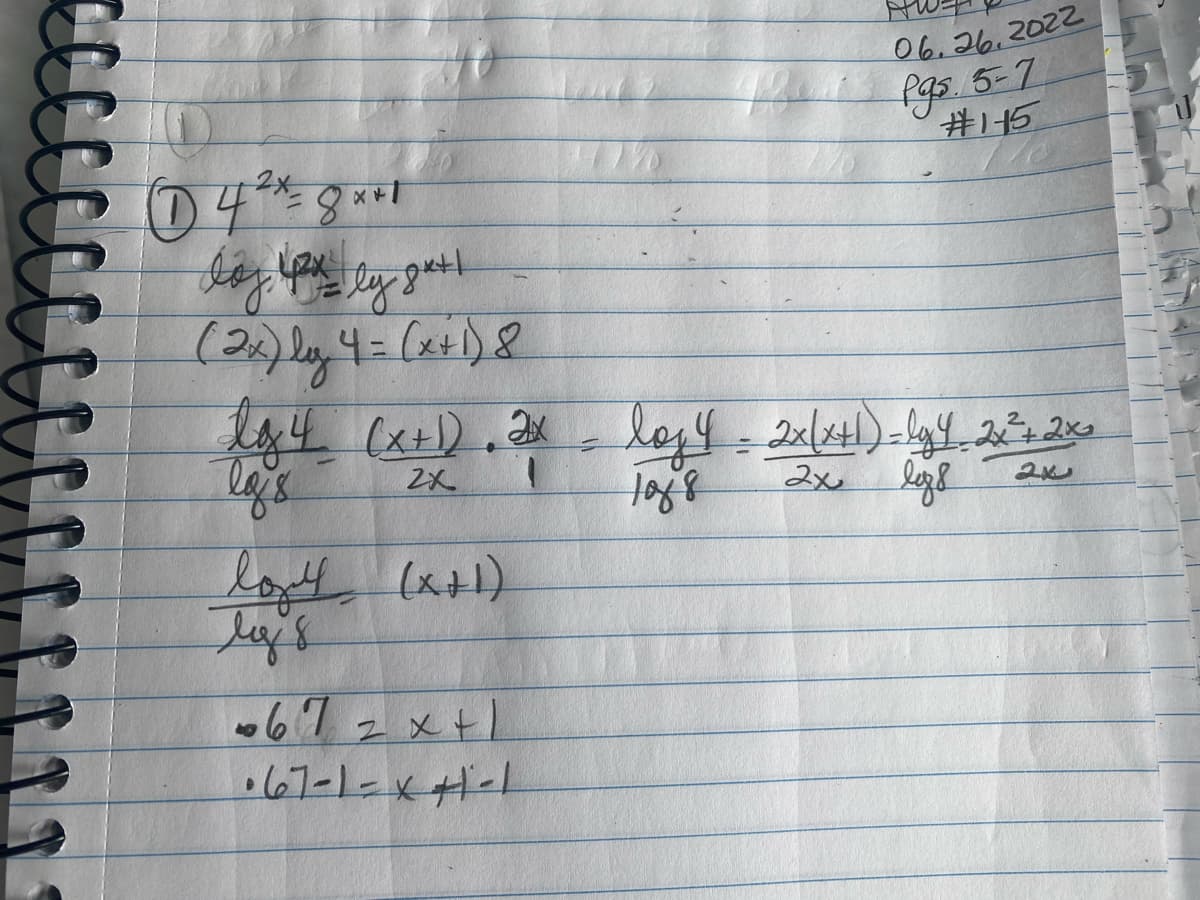 06.26.2022
Pgs. 5-7
#1-15
① 4^2x = 8^x+1
log 4^2x = log 8^x+1
(2x) log 4 = (x+1) 8
log 4 / log 8 = (x+1) / 2x · 2x / 1 = log 4 / log 8 = 2x(x+1) / 2x = log 4 / log 8 = 2x² + 2x / 2x
log 4 / log 8 = (x+1)
.67 = x+1
.67-1 = x+1-1